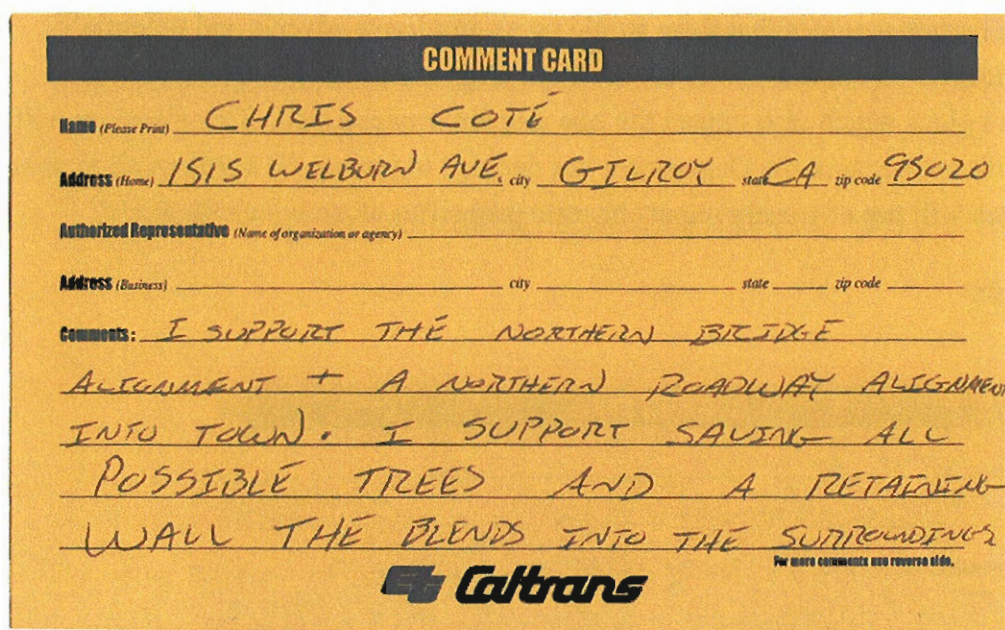 COMMENT CARD
Name (Please Print) CHRIS COTÉ
Address (Home) 1515 WELBURN AVE. city GILROY state CA zip code 95020
Authorized Representative (Name of organization or agency)
Address (Business) city state zip code
Comments: I SUPPORT THE NORTHERN BRIDGE
ALIGNMENT + A NORTHERN ROADWAY ALIGNMENT
INTO TOWN. I SUPPORT SAVING ALL
POSSIBLE TREES AND A RETAINING
WALL THE BLENDS INTO THE SURROUNDINGS
For more comments use reverse side.
Ct Caltrans